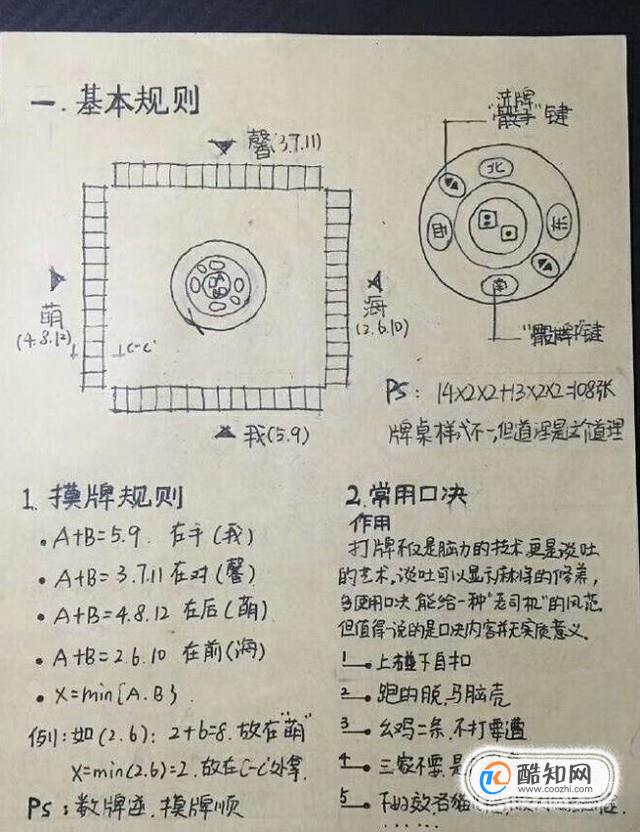 一.基本规则
馨(3.7.11)
萌
(4.8.12)
C-C'
海
(2.6.10)
我(5.9)
洗牌
"骰子"键
北
东
南
西
"骰牌"键
PS: 14×2×2+13×2×2=108张
牌桌样式不一,但道理是这个道理
1.摸牌规则
• A+B=5.9. 在手(我)
• A+B=3.7.11 在对(馨)
• A+B=4.8.12 在后(萌)
• A+B=2.6.10 在前(海)
• X=min{A.B}
例:如(2.6): 2+6=8. 放在"萌"
X=min(2.6)=2. 放在C-C'处拿.
PS: 数牌逆.摸牌顺
2.常用口决
作用
打牌不仅是脑力的技术,更是谈吐
的艺术,谈吐可以显示麻将的修养,
多使用口决,能给一种"老司机"的风范
但值得一说的是口决内容并无实质意义.
1 上碰下自扣
2 跑的脱,马脑壳
3 幺鸡二条,不打要遭
4 三家不要,是
5
酷知网
www.coozhi.com